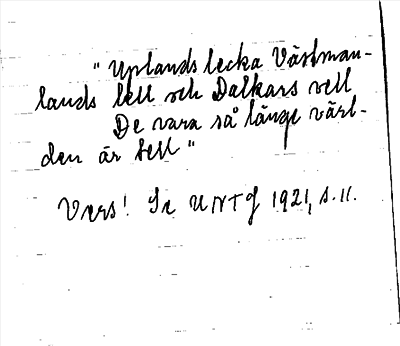 "Uplands lecka Västman-
lands lell och Dalkars vell
De vara så länge värl-
den är sell"
Vers! Se UNTf 1921, s. 11.